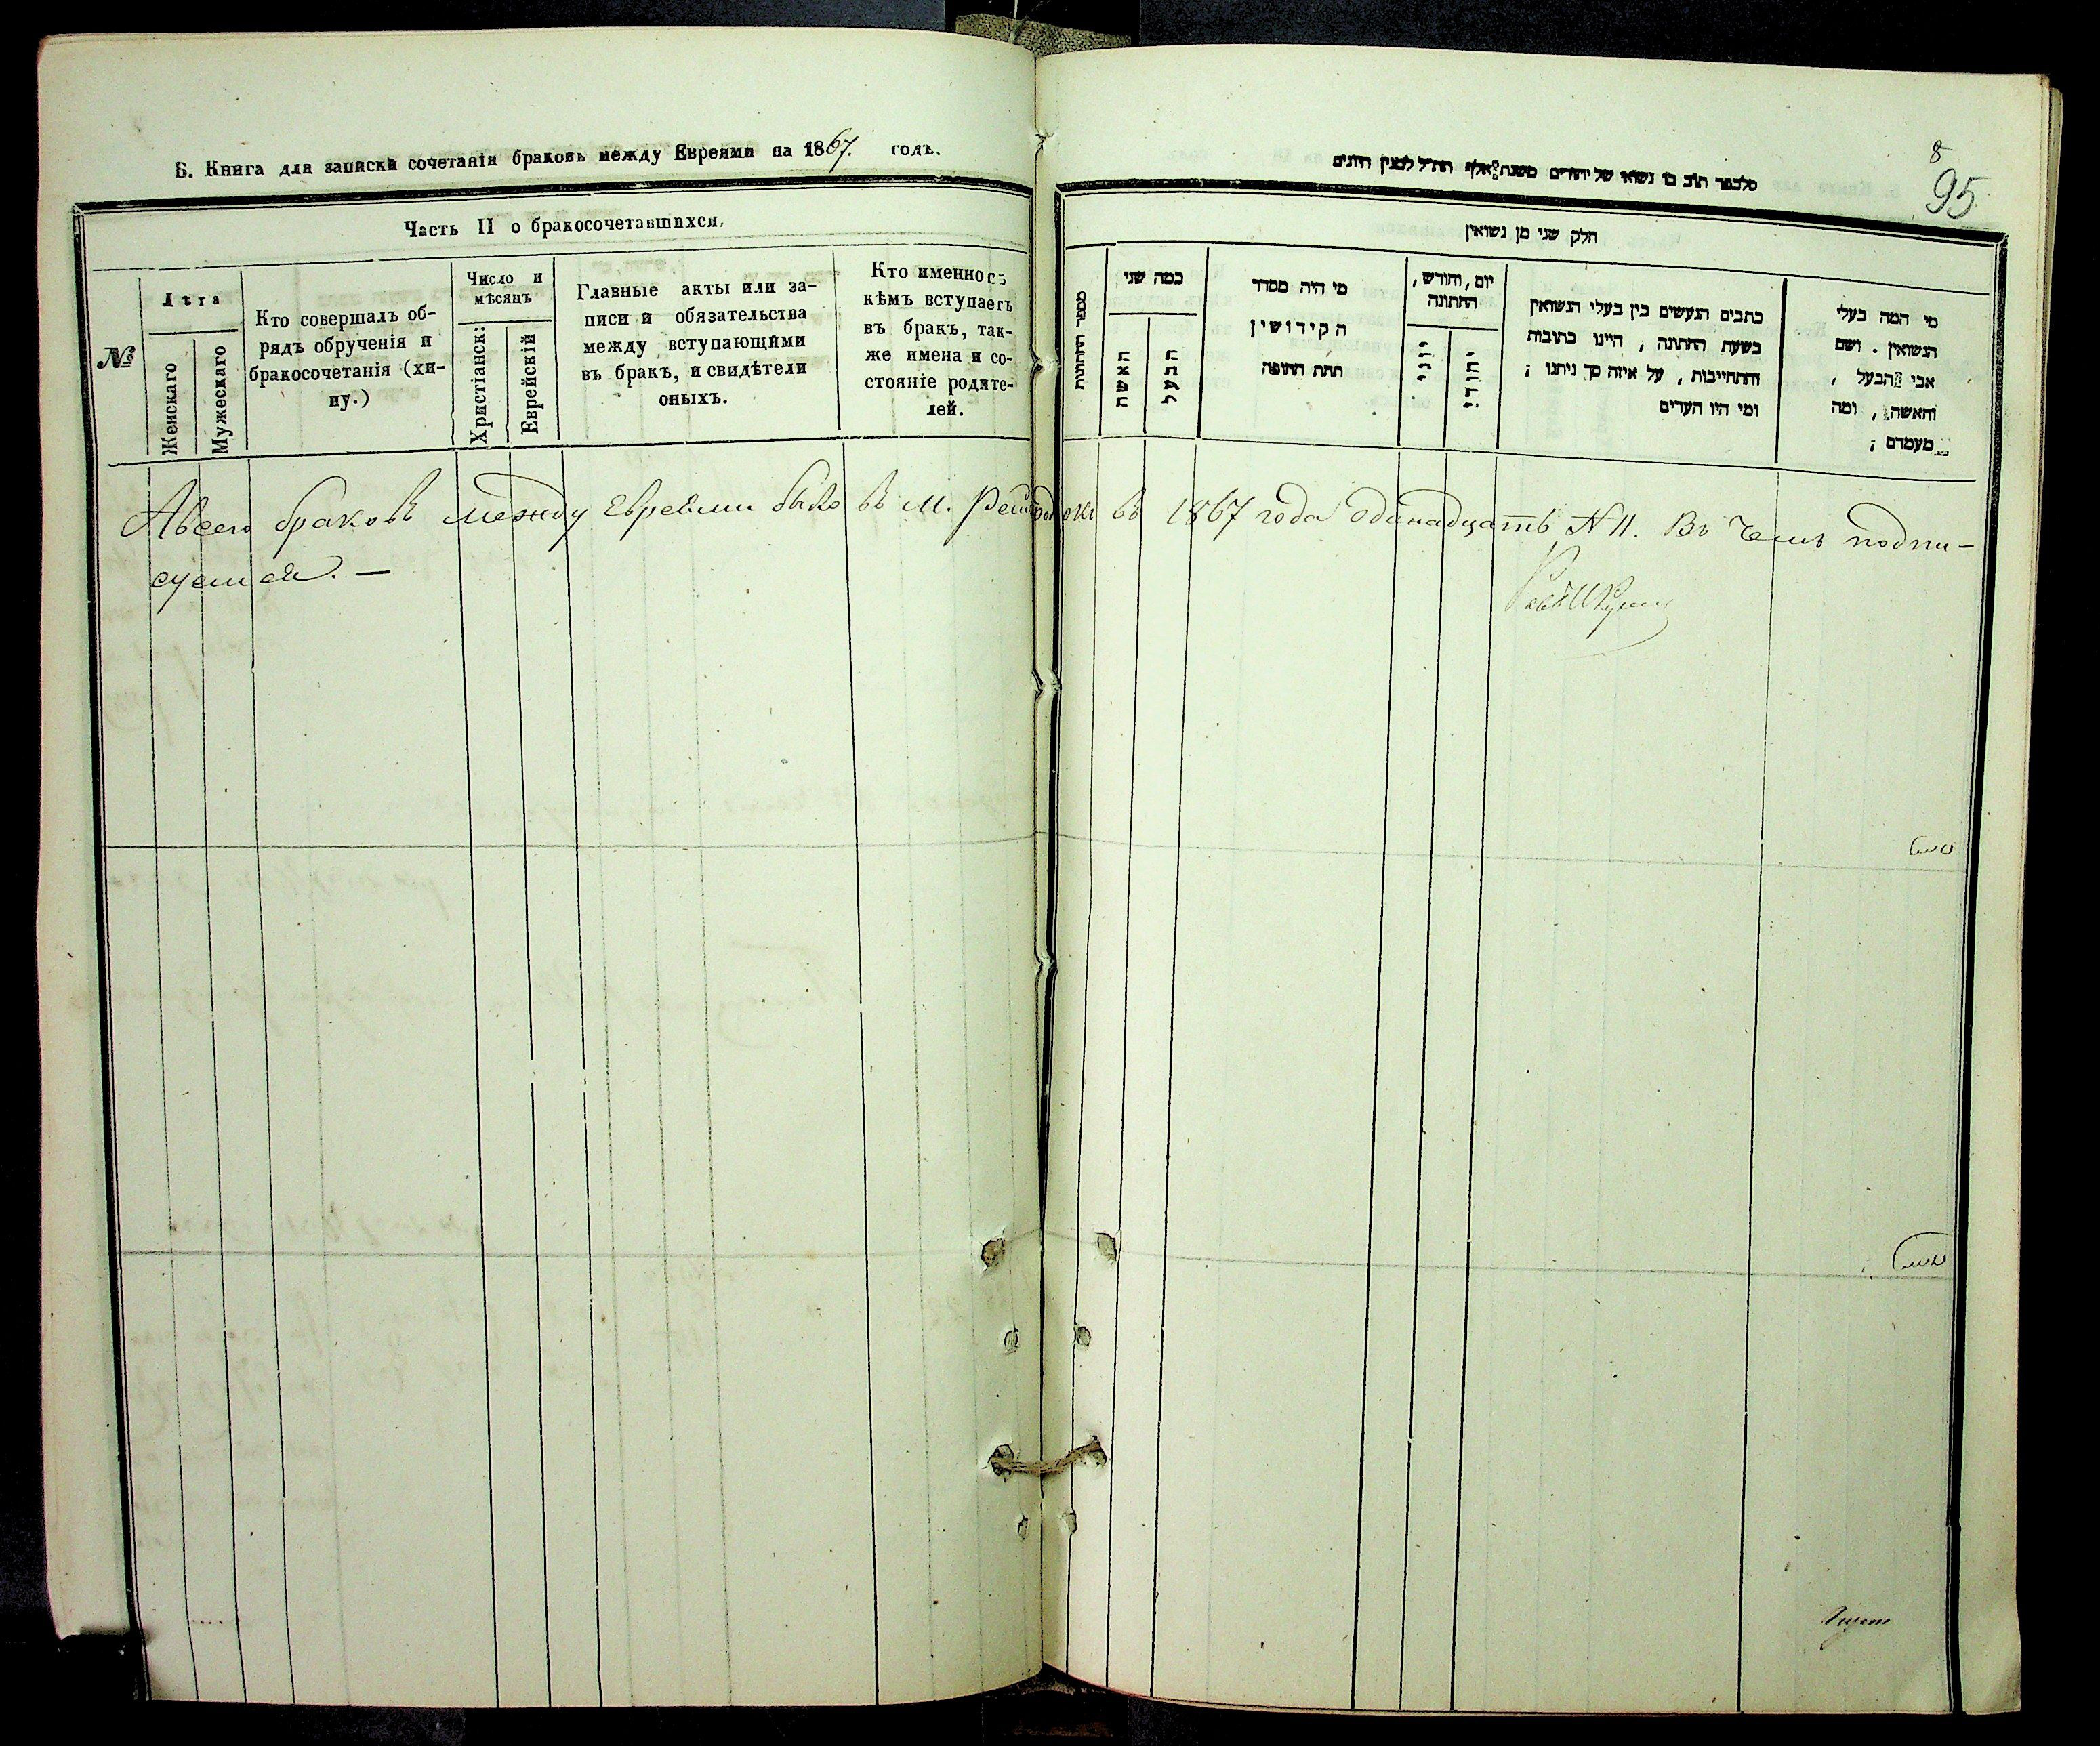 Б. Книга для записки сочетанія браковъ между Евреями на 1867. годъ.
Часть II о бракосочетавшихся.
№
Лѣта
Женскаго
Мужескаго
Кто совершалъ об-
рядъ обрученія и
бракосочетанія (хи-
пу.)
Число и
мѣсяцъ
Христіанск:
Еврейскій
Главные акты или за-
писи и обязательства
между вступающими
въ бракъ, и свидѣтели
оныхъ.
Кто именно съ
кѣмъ вступаетъ
въ бракъ, так-
же имена и со-
стояніе родите-
лей.
8
95
חלק שני מן נשואין
מספר החתונות
כמה שני
האשה
הבעל
מי היה מסדר
הקידושין
תחת החופה
יום, וחודש,
החתונה
יוני
יהודי
כתבים הנעשים בין בעלי הנשואין
בשעת החתונה, היינו כתובות
והתחייבות, על איזה סך ניתנו;
ומי היו העדים
מי המה בעלי
הנשואין. ושם
אבי הבעל,
והאשה, ומה
מעמדם;
Авсего браковъ между Евреями было въ М. въ 1867 года одинадцать N 11. Въ чемъ подпи-
суемся. —